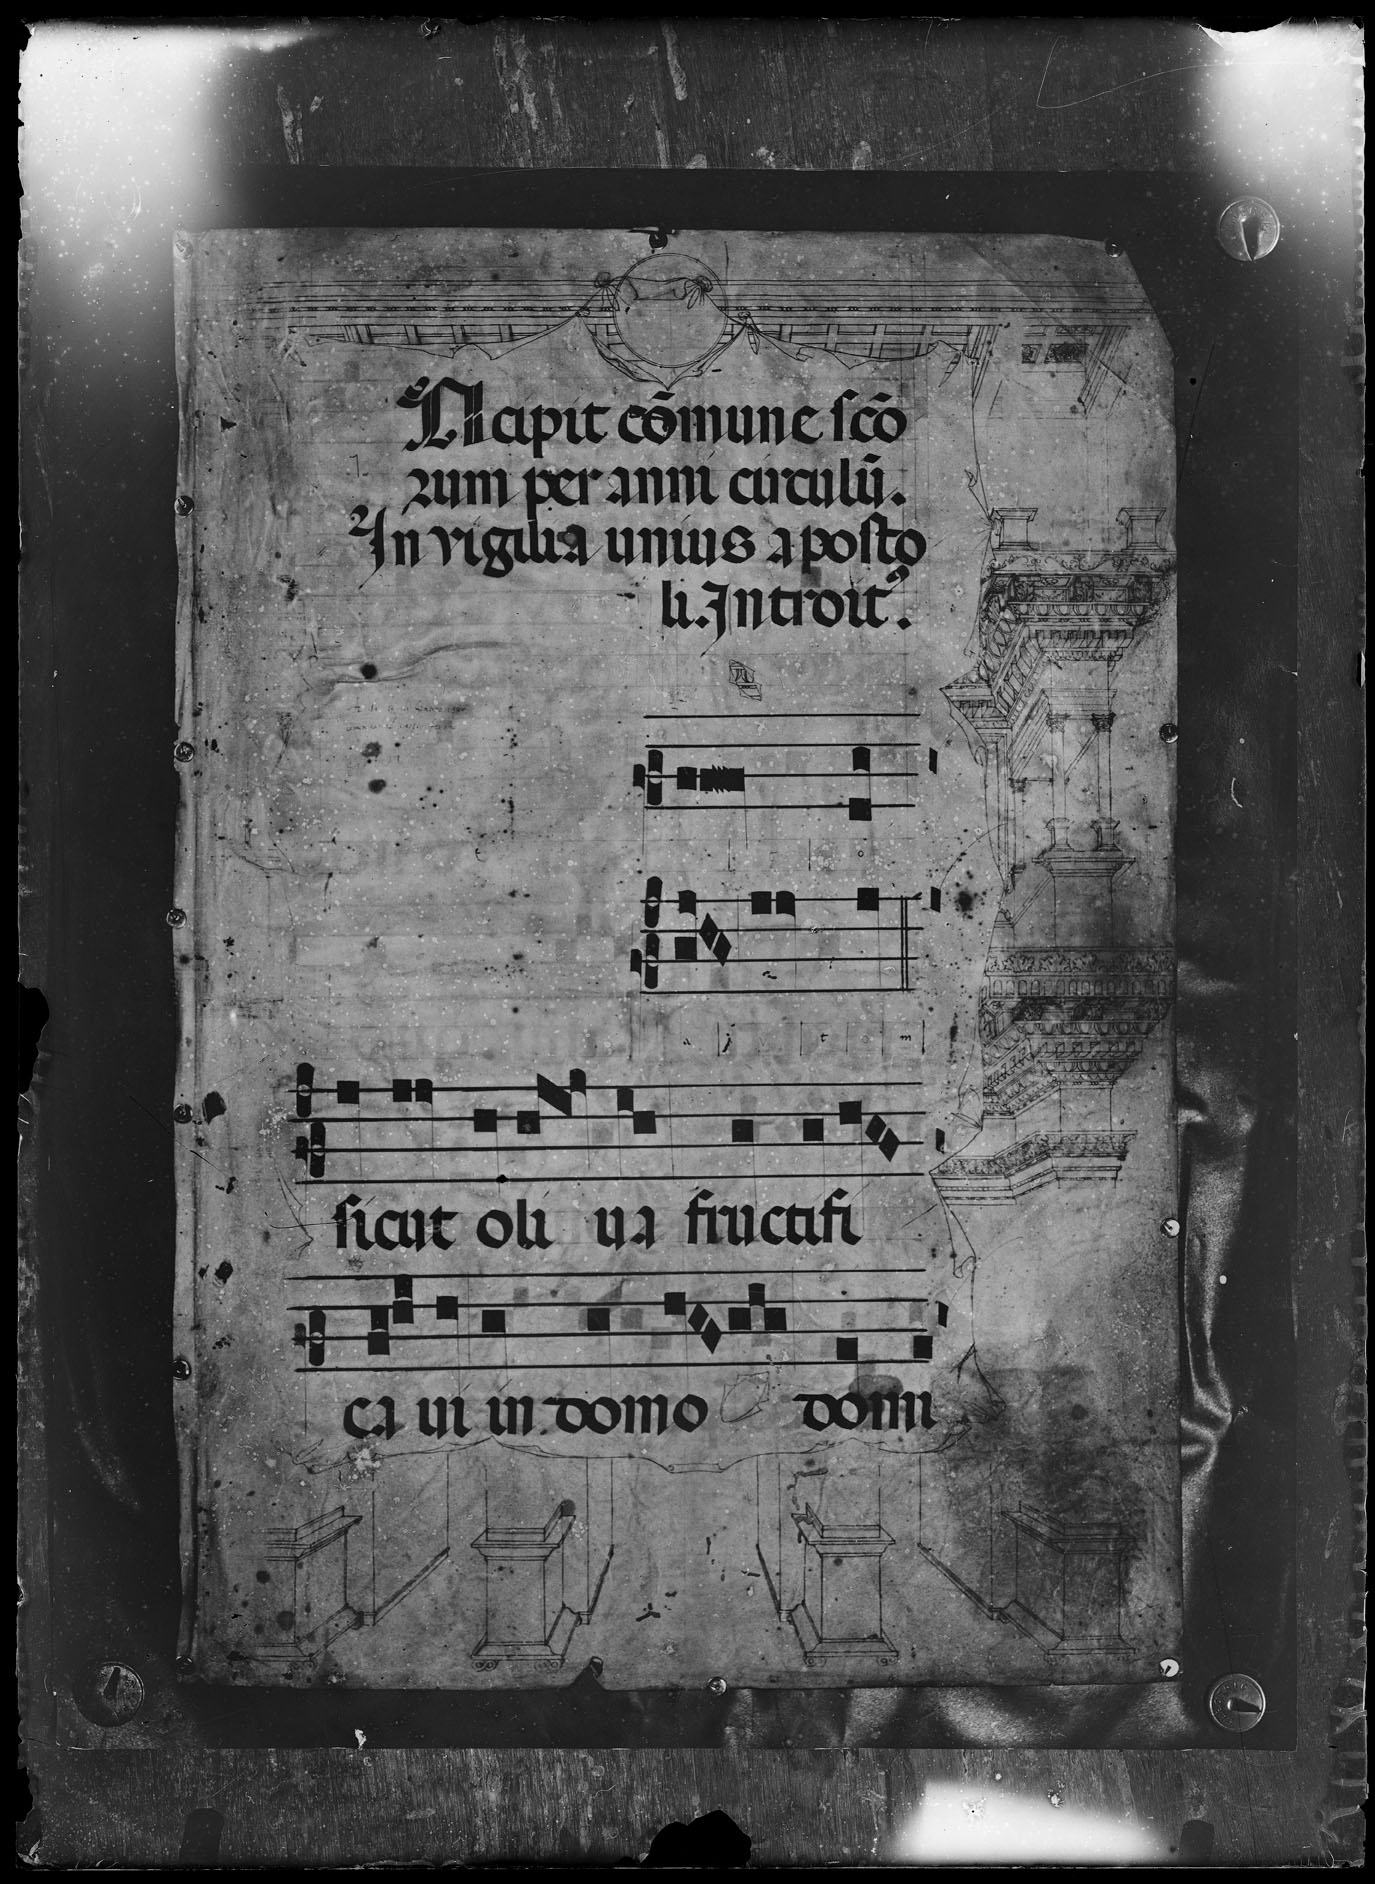 Incipit cōmune scō
rum per anni circulū.
In vigilia unius aposto
li. Introit᾽.
l f o
a j v t o m
sicut oli ua fructifi
ca ui in domo domi